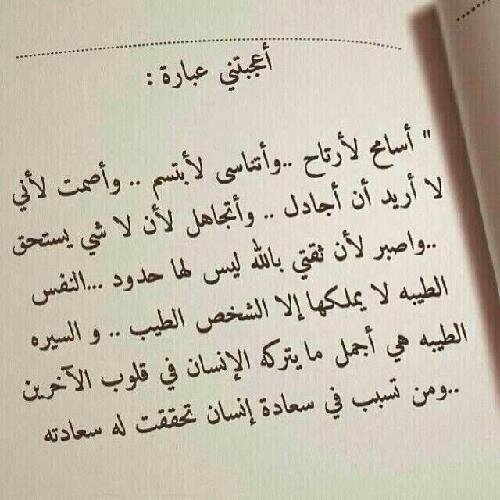 أعجبتني عبارة :
" أسامح لأرتاح ..وأتناسى لأبتسم .. وأصمت لأني
لا أريد أن أجادل .. وأتجاهل لأن لا شي يستحق
..واصبر لأن ثقتي بالله ليس لها حدود ...النفس
الطيبه لا يملكها إلا الشخص الطيب .. و السيره
الطيبه هي أجمل مايتركه الإنسان في قلوب الآخرين
..ومن تسبب في سعادة إنسان تحققت له سعادته